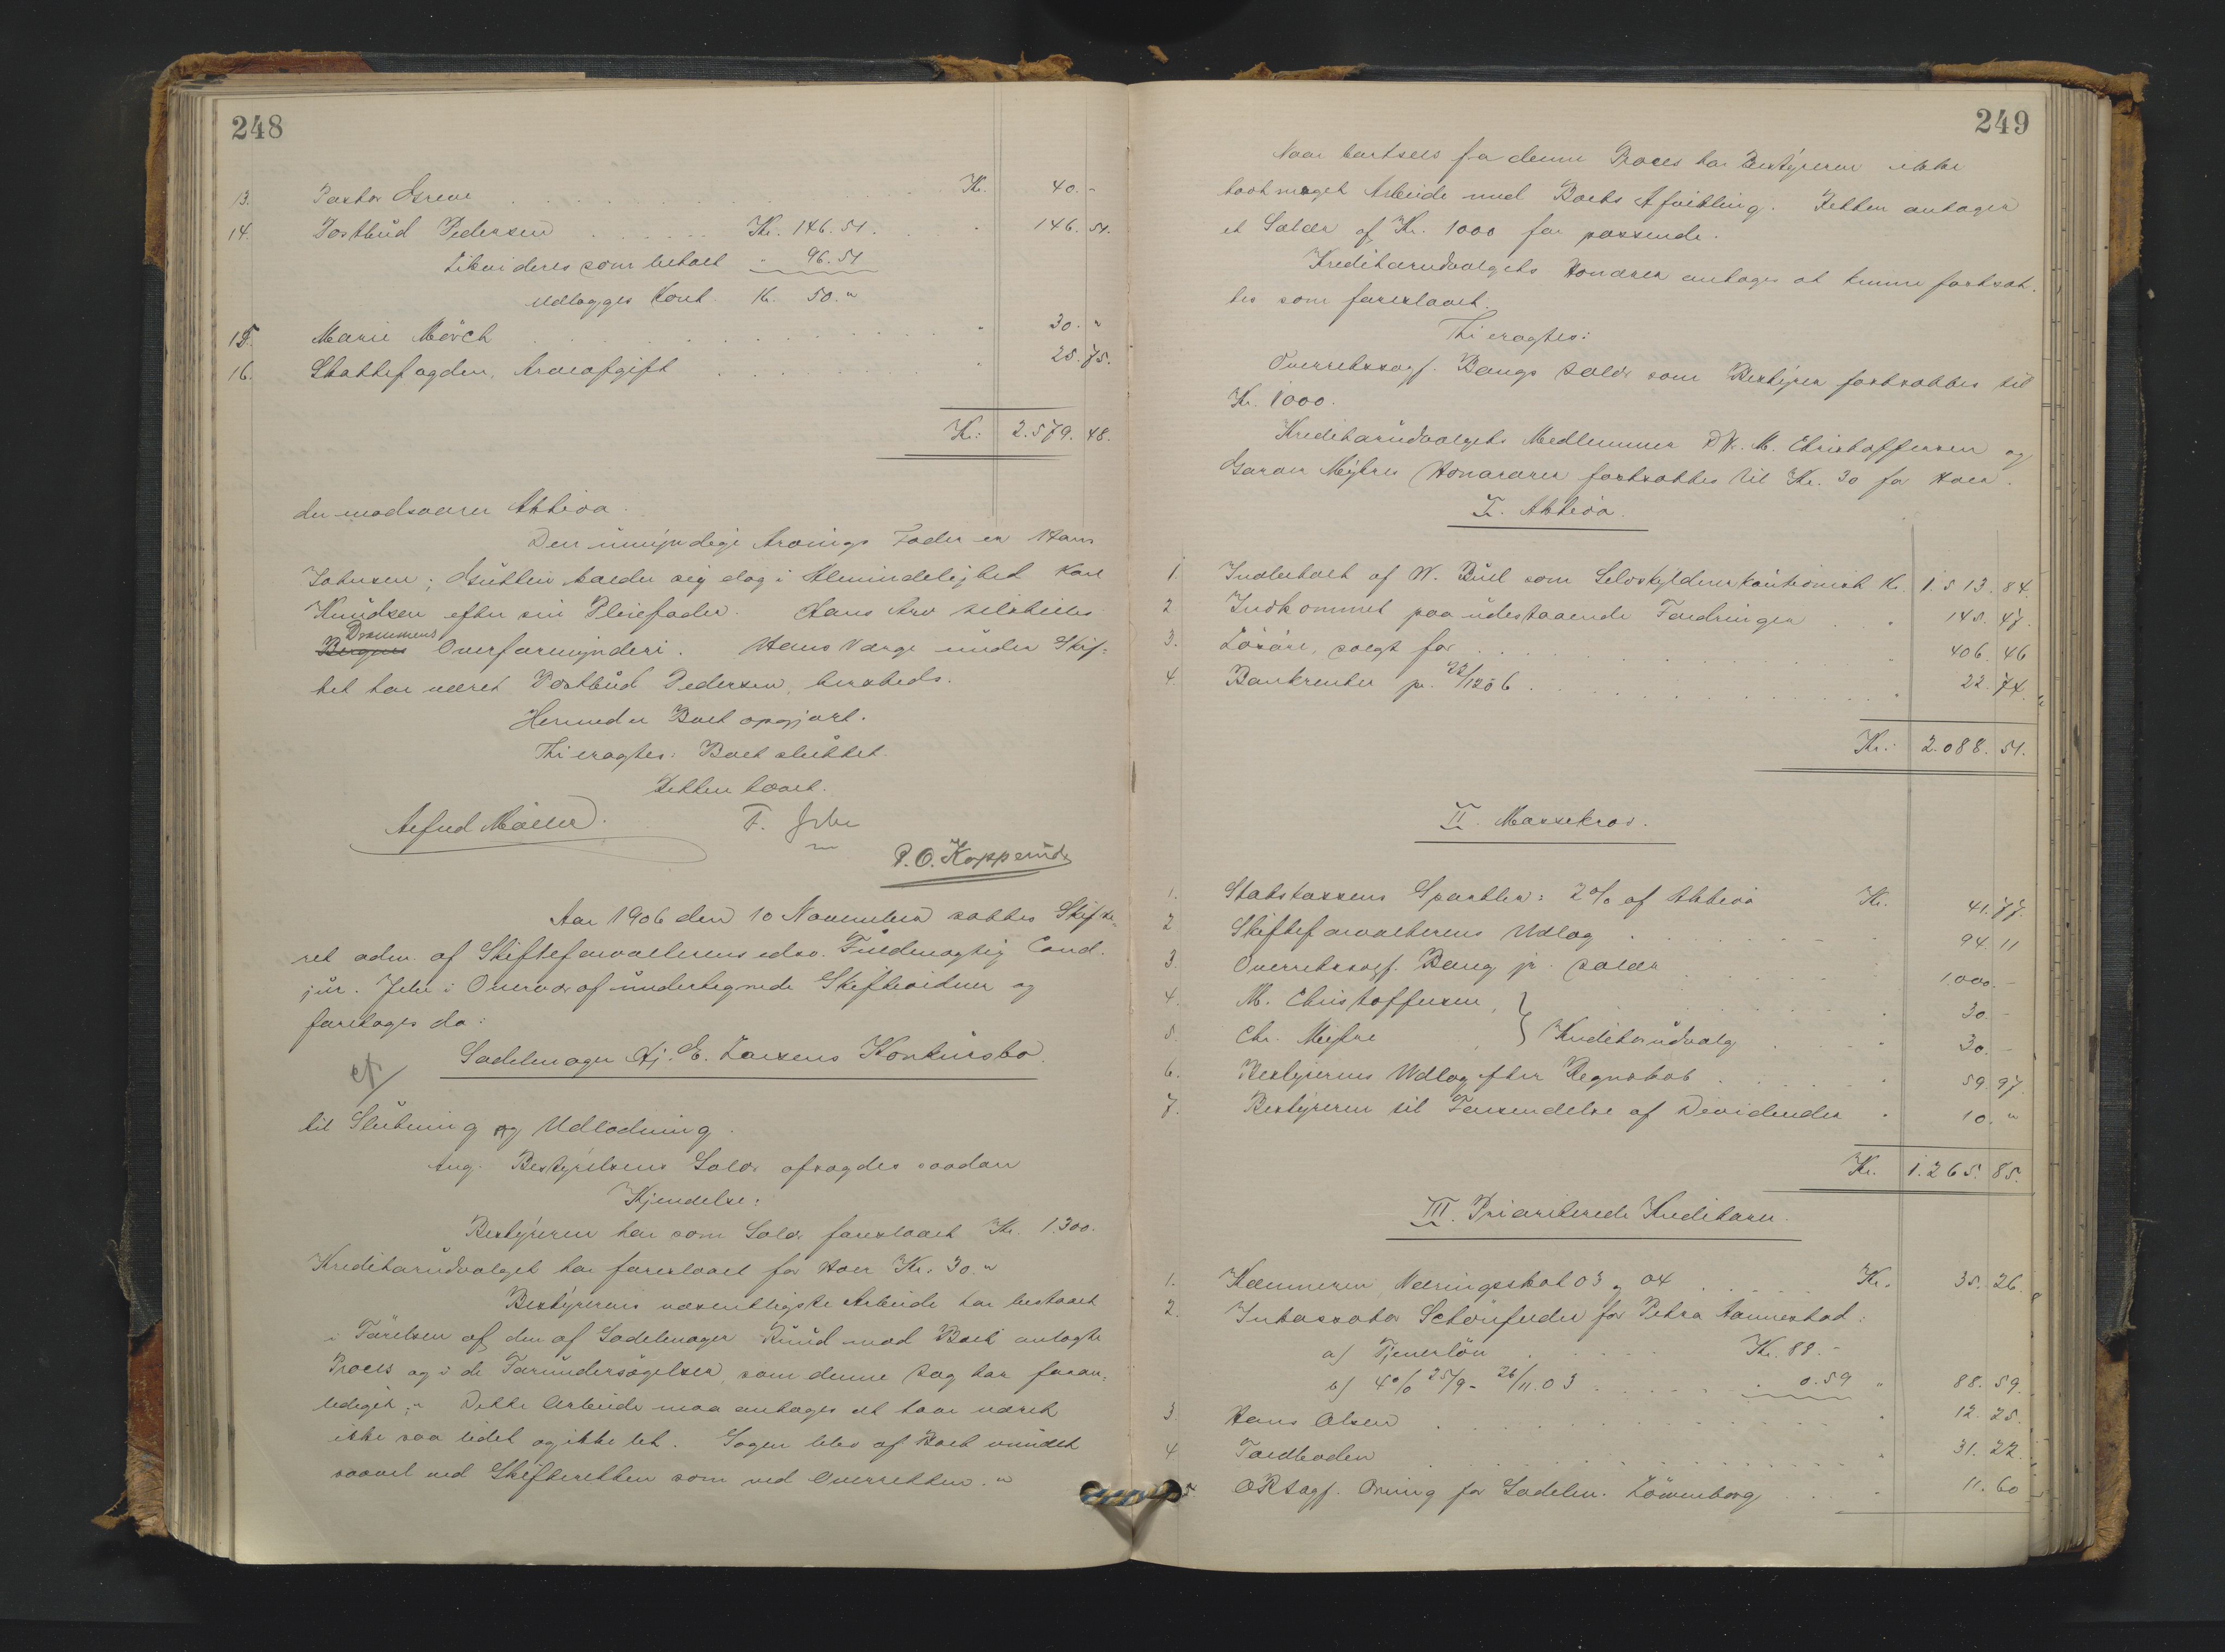 248
13. Pastor Greve . . . . . Kr. 40. -
14. Postbud Pedersen . . . . . Kr. 146.51. . . " 146. 51.
Likvideres som betalt " 96.51
Udlægges Kont. Kr. 50."
15. Marie Mörch . . . . . " 30. "
16. Skattefogden, Arveafgift . . . . . " 25. 75.
Kr: 2.579. 48.
der modsvarer Aktiva.
Den umyndige Arvings Fader er Hans
Johnsen; Gutten kalder sig dog i Almindelighed Karl
Knudsen efter sin Pleiefader. Hans Arv tilstilles
Drammens
Bergens Overformynderi. Hans Værge under Skif-
tet har været Postbud Pedersen, hersteds.
Hermed er Boet opgjort.
Thi eragtes: Boet sluttet.
Retten hævet.
Alfred Möller. F. Jebe
P. O. Kopperud
Aar 1906 den 10 November sattes Skifte-
ret adm. af Skifteforvalterens edsv. Fuldmægtig Cand.
jur. Jebe i Overvær af undertegnede Skiftevidner og
foretoges da:
Sadelmager Hj. E. Larsens Konkursbo.
til Slutning og Udlodning.
Ang. Bestyrelsens Salær afsagdes saadan
Kjendelse:
Bestyreren har som Salær foreslaaet Kr. 1.300.
Kreditorudvalget har foreslaaet for Hver Kr. 30."
Bestyrerens væsentligste Arbeide har bestaaet
i Förelsen af den af Sadelmager Ruud mod Boet anlagte
Proces og i de Forundersögelser, som denne Sag har foran-
lediget;" Dette Arbeide maa antages at have været
ikke saa lidet og ikke let. Sagen blev af Boet vundet
saavel ved Skifteretten som ved Overretten."
249
Naar bortsees fra denne Proces har Bestyreren ikke
havt meget Arbeide med Boets Afvikling. Retten antager
et Salær af Kr. 1000 for passende.
Kreditorudvalgets Honorar antages at kunne fastsæt-
tes som foreslaaet.
Thi eragtes:
Overretssagf. Bangs Salær som Bestyrer fastsættes til
Kr. 1000.
Kreditorudvalgets Medlemmer M. Christoffersen og
Garver Myhres Honorarer fastsættes til Kr. 30 for Hver.
I. Aktiva.
1. Indbetalt af W. Buil som Selvskyldnerkautionist Kr. 1.513. 84.
2 Indkommet paa udestaaende Fordringer . . " 145. 47.
3. Lösöre, solgt for . . . . . " 406. 46
4 Bankrenter pr. 22/12 06 . . . . . " 22. 74.
Kr.: 2.088. 51.
II. Massekrav.
1. Statskassens Sportler: 2% af Aktiva Kr. 41. 77.
2 Skifteforvalterens Udlæg . . . . . 94. 11
3. Overretssagf. Bang jr. Salær . . . . . 1.000. -
4. M. Christoffersen, } . . . . . " 30. -
5 Chr. Myhre } Kreditorudvalg . . . " 30. -
6. Bestyrerens Udlæg efter Regnskab . . . . . " 59. 97.
7. Bestyreren til Forsendelse af Dividender " 10. "
Kr. 1.265. 85.
III. Prioriterede Kreditorer.
1. Kæmneren, Næringsskat 03 og 04 . . . . Kr. 35. 26.
2. Inkassator Schönfelder for Petra Aannestad:
a) Tjenerlön . . . . . Kr. 88. -
b) 4% 25/9 - 26/11.03 . . . . . 0.59 " 88. 59.
3 Hans Olsen . . . . . " 12. 25.
4 Toldboden . . . . . " 31. 22.
5. ORsagf. Oning for Sadelm. Löwenborg . . " 11. 60